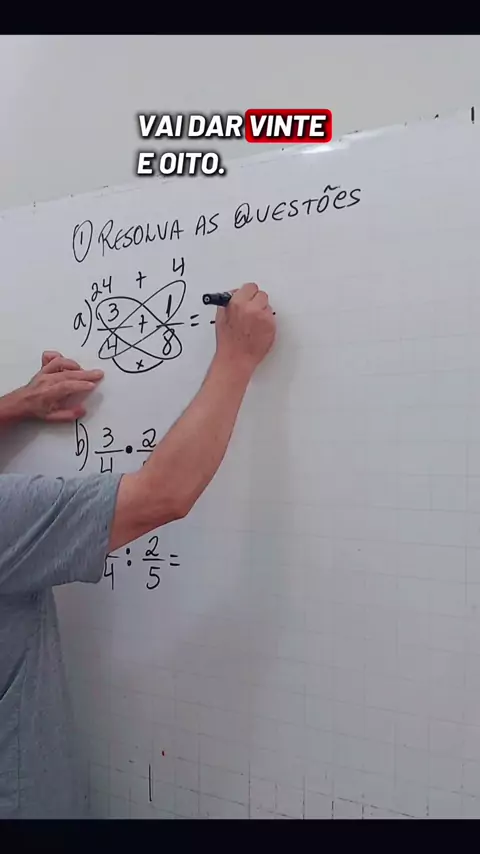 VAI DAR VINTE
E OITO.
① RESOLVA AS QUESTÕES
24 + 4
a) 3/4 + 1/8 =
x
b) 3/4 • 2/
/4 : 2/5 =